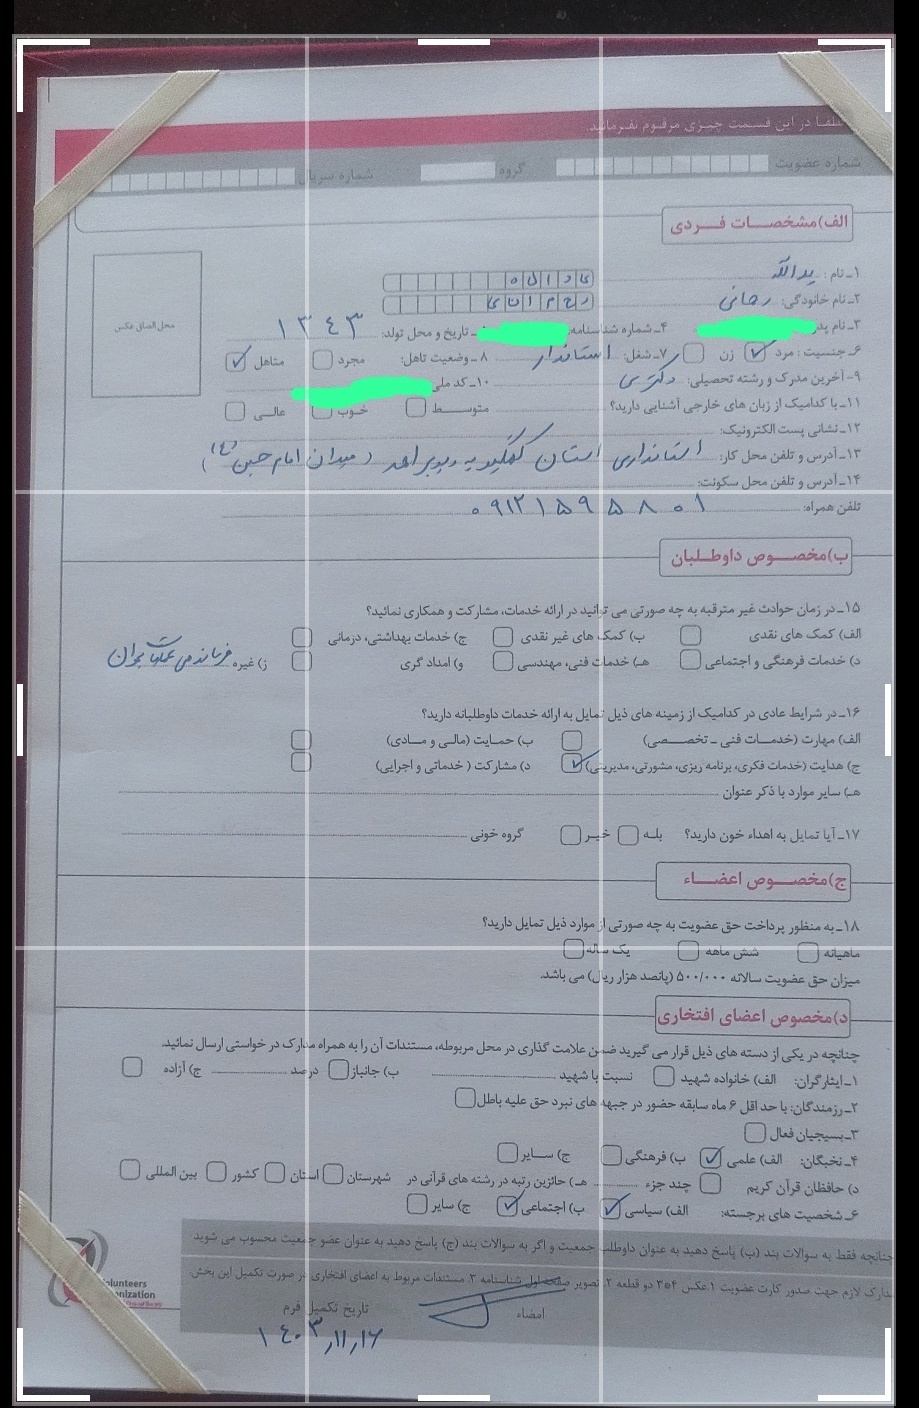 لطفا در این قسمت چیزی مرقوم نفرمائید.
شماره عضویت گروه شماره سریال
الف)مشخصات فردی
محل الصاق عکس
۱ـ نام: یداله ی د ا ل ه
۲ـ نام خانوادگی: رحمانی ر ح م ا ن ی
۳ـ نام ۴ـ شماره شناسنامه: ـ تاریخ و محل تولد: ۱۳۴۳
۶ـ جنسیت: مرد زن ۷ـ شغل: استاندار ۸ ـ وضعیت تاهل: مجرد متاهل
۹ـ آخرین مدرک و رشته تحصیلی: دکتری ۱۰ـ کد ملی
۱۱ـ با کدامیک از زبان های خارجی آشنایی دارید؟ متوسط خوب عالی
۱۲ـ نشانی پست الکترونیک:
۱۳ـ آدرس و تلفن محل کار: استانداری استان کهگیلویه و بویراحمد (میدان امام حسین (ع))
۱۴ـ آدرس و تلفن محل سکونت:
تلفن همراه: ۰۹۱۲۱۵۹۵۸۰۱
ب)مخصوص داوطلبان
۱۵ـ در زمان حوادث غیر مترقبه به چه صورتی می توانید در ارائه خدمات، مشارکت و همکاری نمائید؟
الف) کمک های نقدی ب) کمک های غیر نقدی ج) خدمات بهداشتی، درمانی
د) خدمات فرهنگی و اجتماعی هـ) خدمات فنی، مهندسی و) امداد گری ز) غیره فرماندهی عملیات بحران
۱۶ـ در شرایط عادی در کدامیک از زمینه های ذیل تمایل به ارائه خدمات داوطلبانه دارید؟
الف) مهارت (خدمات فنی ـ تخصصی) ب) حمایت (مالی و مادی)
ج) هدایت (خدمات فکری، برنامه ریزی، مشورتی، مدیریتی) د) مشارکت ( خدماتی و اجرایی)
هـ) سایر موارد با ذکر عنوان
۱۷ـ آیا تمایل به اهداء خون دارید؟ بله خیر گروه خونی
ج)مخصوص اعضاء
۱۸ـ به منظور پرداخت حق عضویت به چه صورتی از موارد ذیل تمایل دارید؟
ماهیانه شش ماهه یک ساله
میزان حق عضویت سالانه ۵۰۰/۰۰۰ (پانصد هزار ریال) می باشد.
د)مخصوص اعضای افتخاری
چنانچه در یکی از دسته های ذیل قرار می گیرید ضمن علامت گذاری در محل مربوطه، مستندات آن را به همراه مدارک در خواستی ارسال نمائید.
۱ـ ایثارگران: الف) خانواده شهید نسبت با شهید ب) جانباز درصد ج) آزاده
۲ـ رزمندگان: با حد اقل ۶ ماه سابقه حضور در جبهه های نبرد حق علیه باطل
۳ـ بسیجیان فعال
۴ـ نخبگان: الف) علمی ب) فرهنگی ج) سایر
د) حافظان قرآن کریم چند جزء هـ) حائزین رتبه در رشته های قرآنی در شهرستان استان کشور بین المللی
۶ـ شخصیت های برجسته: الف) سیاسی ب) اجتماعی ج) سایر
چنانچه فقط به سوالات بند (ب) پاسخ دهید به عنوان داوطلب جمعیت و اگر به سوالات بند (ج) پاسخ دهید به عنوان عضو جمعیت محسوب می شوید
مدارک لازم جهت صدور کارت عضویت ۱.عکس ۴*۳ دو قطعه ۲.تصویر صفحه اول شناسنامه ۳. مستندات مربوط به اعضای افتخاری در صورت تکمیل این بخش.
امضاء تاریخ تکمیل فرم
۱۴۰۳/۱۱/۱۶